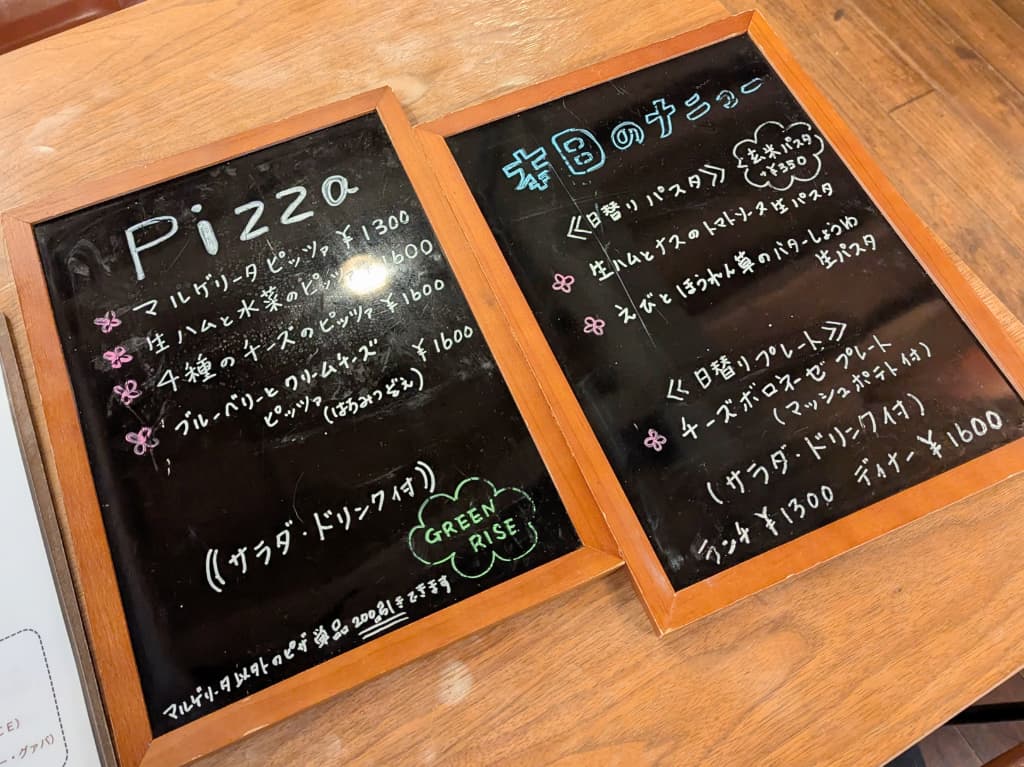 Pizza
マルゲリータピッツァ ¥1300
生ハムと水菜のピッツァ ¥1600
4種のチーズのピッツァ ¥1600
ブルーベリーとクリームチーズ
ピッツァ ¥1600
(はちみつぞえ)
((サラダ・ドリンク付))
GREEN
RISE
マルゲリータ以外のピザ単品200引きできます
本日のメニュー
《日替りパスタ》
玄米パスタ
+¥350
生ハムとナスのトマトソース生パスタ
えびとほうれん草のバターしょうゆ
生パスタ
《日替りプレート》
チーズボロネーゼプレート
(マッシュポテト付)
(サラダ・ドリンク付)
ランチ¥1300 ディナー¥1600
CE)
ー・グァバ)